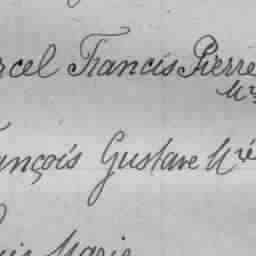 rcel Francis Pierre
ançois Gustave Mé
uis Marie